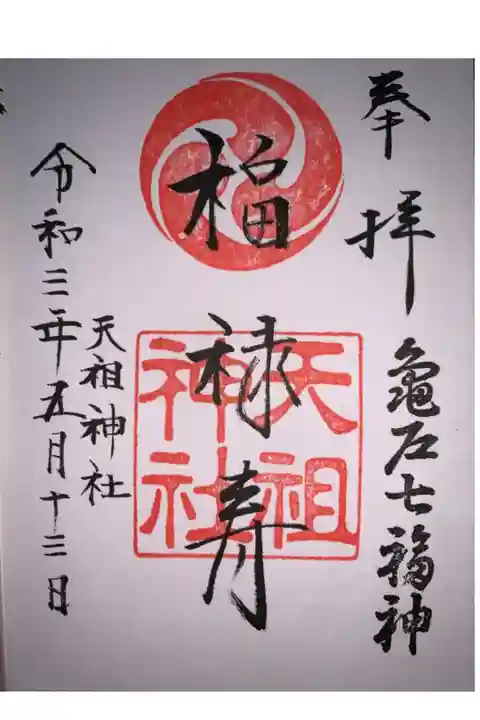 奉拝
亀戸七福神
福禄寿
天祖神社
天祖神社
令和三年五月十三日